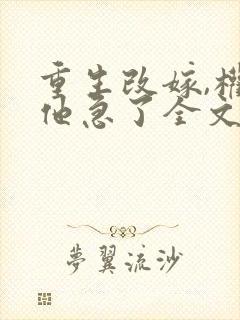 重生改嫁,权
他急了全文
梦翼流沙